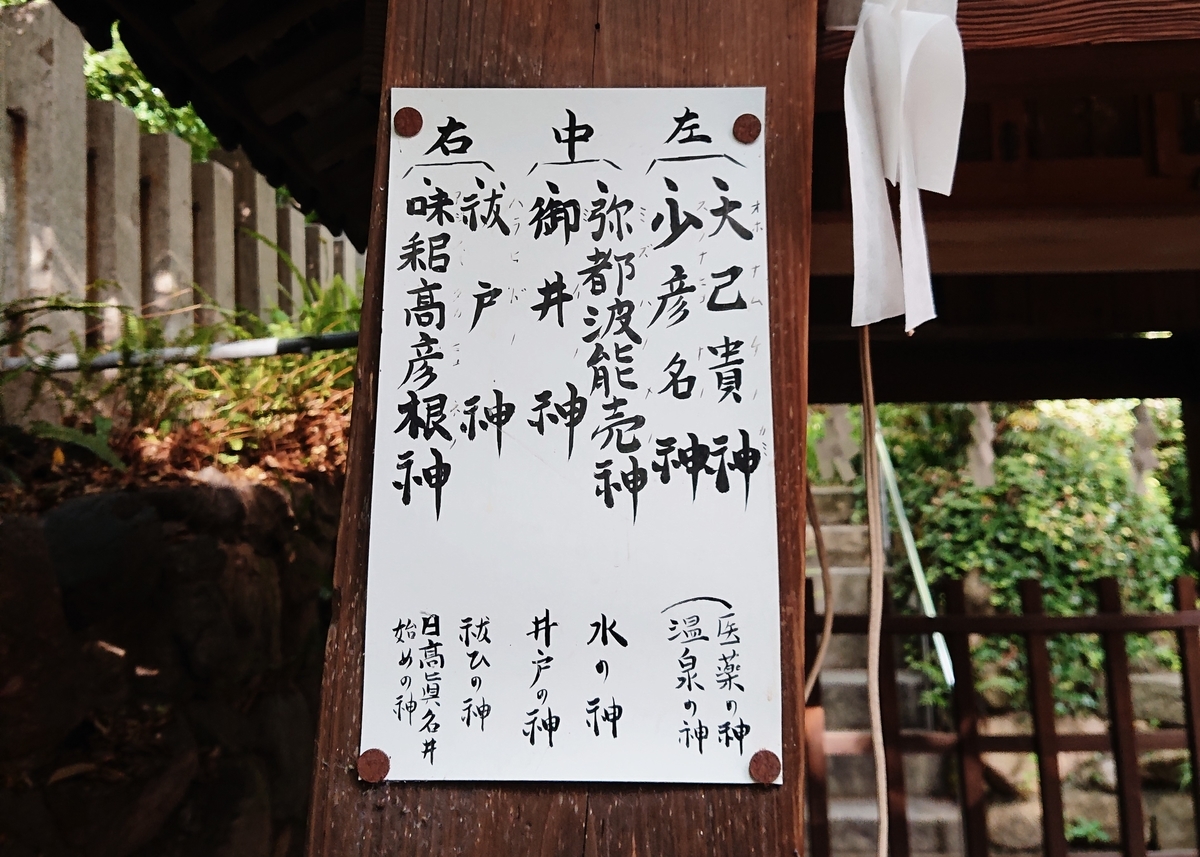 左
大己貴神
少彦名神
中
弥都波能売神
御井神
右
祓戸神
味耜高彦根神
医薬の神
温泉の神
水の神
井戸の神
祓ひの神
日高眞名井
始めの神